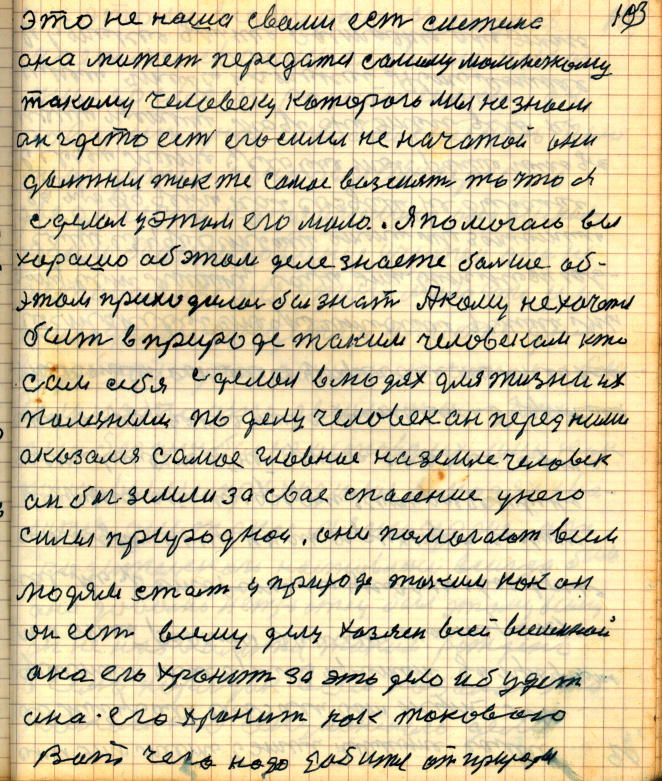 103
это не наша свами ест система
она может передатся самому маминкому
такому человеку которого мы не знаем
он гдето ест его силы не початой они
должны так же самое возснят то что я
сделал у этом его мало. Я помогаю вы
хорашо об этом деле знаете болше об-
этом приходилос бы знат А кому не хочетс
быт в природе таким человеком кто
сам себя сделал в людях для жизни их
полезным по делу человек он перед ними
оказался самое главное на земле человек
он был земли за свае спасение у него
силы природной. они помогают всем
людям стат у природе таким как он
он ест всему делу хазяен всей вселеной
она его хранит за это дело и будет
она его хранит как такового
Вот чего надо добится от природы